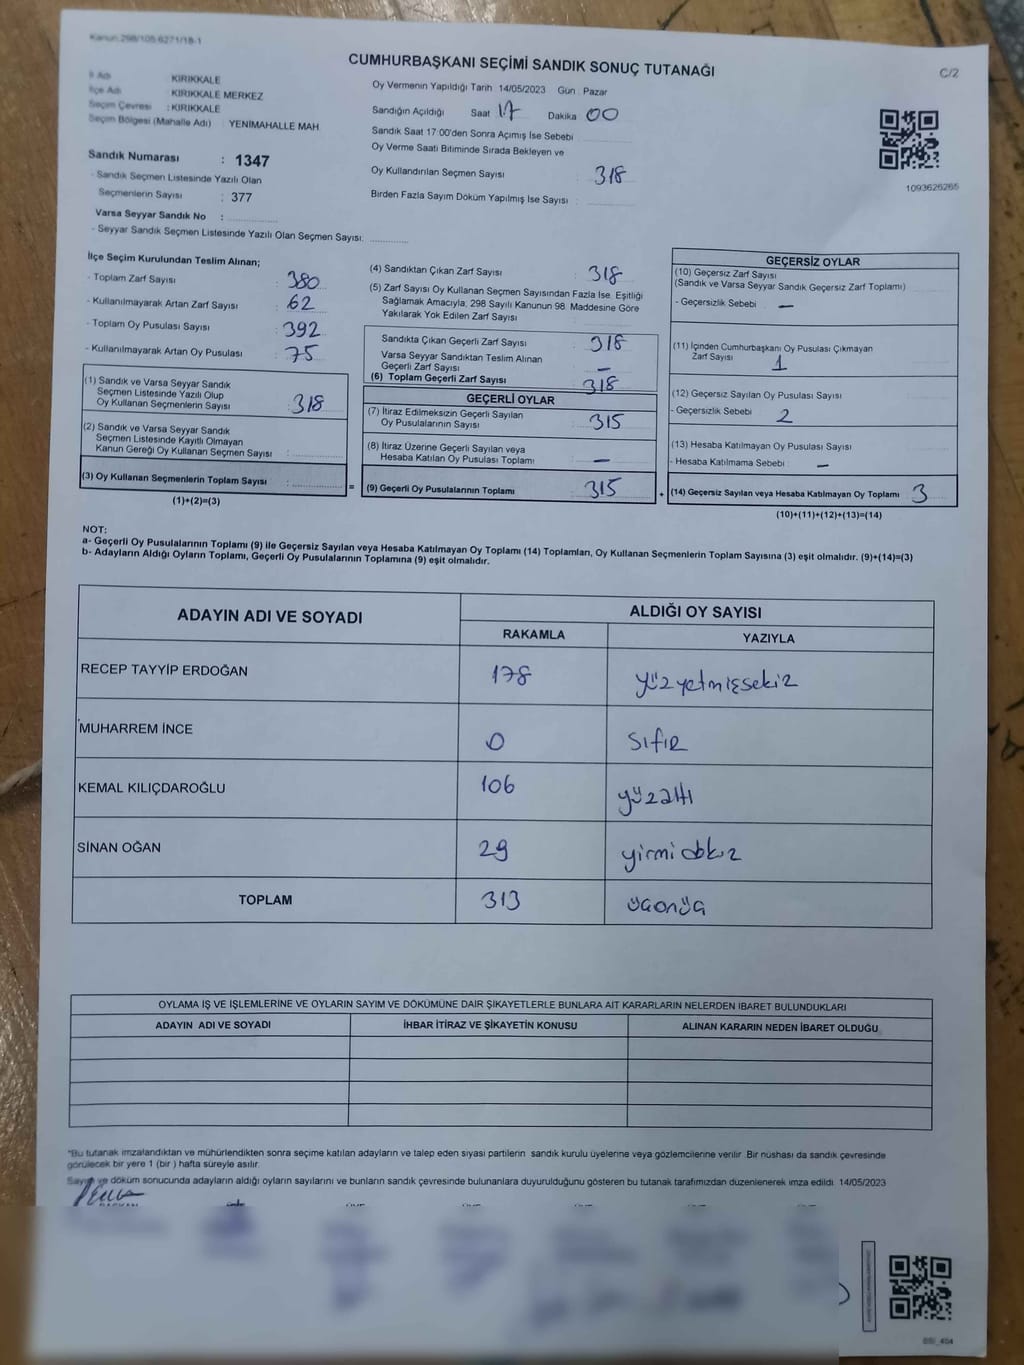 Kanun:298/105,6271/18-1
CUMHURBAŞKANI SEÇİMİ SANDIK SONUÇ TUTANAĞI
C/2
İl Adı KIRIKKALE
İlçe Adı KIRIKKALE MERKEZ
Seçim Çevresi : KIRIKKALE
Seçim Bölgesi (Mahalle Adı) : YENİMAHALLE MAH
Sandık Numarası : 1347
- Sandık Seçmen Listesinde Yazılı Olan
Seçmenlerin Sayısı : 377
Varsa Seyyar Sandık No :
- Seyyar Sandık Seçmen Listesinde Yazılı Olan Seçmen Sayısı:
Oy Vermenin Yapıldığı Tarih 14/05/2023 Gün : Pazar
Sandığın Açıldığı Saat 17 Dakika 00
Sandık Saat 17:00'den Sonra Açımış İse Sebebi
Oy Verme Saati Bitiminde Sırada Bekleyen ve
Oy Kullandırılan Seçmen Sayısı : 318
Birden Fazla Sayım Döküm Yapılmış İse Sayısı :
1093626265
İlçe Seçim Kurulundan Teslim Alınan;
- Toplam Zarf Sayısı : 380
- Kullanılmayarak Artan Zarf Sayısı : 62
- Toplam Oy Pusulası Sayısı : 392
- Kullanılmayarak Artan Oy Pusulası : 75
(1) Sandık ve Varsa Seyyar Sandık
Seçmen Listesinde Yazılı Olup
Oy Kullanan Seçmenlerin Sayısı : 318
(2) Sandık ve Varsa Seyyar Sandık
Seçmen Listesinde Kayıtlı Olmayan
Kanun Gereği Oy Kullanan Seçmen Sayısı :
(3) Oy Kullanan Seçmenlerin Toplam Sayısı :
(1)+(2)=(3)
(4) Sandıktan Çıkan Zarf Sayısı : 318
(5) Zarf Sayısı Oy Kullanan Seçmen Sayısından Fazla İse, Eşitliği
Sağlamak Amacıyla, 298 Sayılı Kanunun 98. Maddesine Göre
Yakılarak Yok Edilen Zarf Sayısı
Sandıkta Çıkan Geçerli Zarf Sayısı : 318
Varsa Seyyar Sandıktan Teslim Alınan
Geçerli Zarf Sayısı : –
(6) Toplam Geçerli Zarf Sayısı 318
GEÇERLİ OYLAR
(7) İtiraz Edilmeksizin Geçerli Sayılan
Oy Pusulalarının Sayısı : 315
(8) İtiraz Üzerine Geçerli Sayılan veya
Hesaba Katılan Oy Pusulası Toplamı : –
=
(9) Geçerli Oy Pusulalarının Toplamı : 315
+
GEÇERSİZ OYLAR
(10) Geçersiz Zarf Sayısı
(Sandık ve Varsa Seyyar Sandık Geçersiz Zarf Toplamı)
- Geçersizlik Sebebi : –
(11) İçinden Cumhurbaşkanı Oy Pusulası Çıkmayan
Zarf Sayısı 1
(12) Geçersiz Sayılan Oy Pusulası Sayısı
- Geçersizlik Sebebi : 2
(13) Hesaba Katılmayan Oy Pusulası Sayısı
- Hesaba Katılmama Sebebi : –
(14) Geçersiz Sayılan veya Hesaba Katılmayan Oy Toplamı 3
(10)+(11)+(12)+(13)=(14)
NOT:
a- Geçerli Oy Pusulalarının Toplamı (9) ile Geçersiz Sayılan veya Hesaba Katılmayan Oy Toplamı (14) Toplamları, Oy Kullanan Seçmenlerin Toplam Sayısına (3) eşit olmalıdır. (9)+(14)=(3)
b- Adayların Aldığı Oyların Toplamı, Geçerli Oy Pusulalarının Toplamına (9) eşit olmalıdır.
ADAYIN ADI VE SOYADI
ALDIĞI OY SAYISI
RAKAMLA YAZIYLA
RECEP TAYYİP ERDOĞAN 178 yüzyetmişsekiz
MUHARREM İNCE 0 sıfır
KEMAL KILIÇDAROĞLU 106 yüzaltı
SİNAN OĞAN 29
TOPLAM 313 üçonüç
OYLAMA İŞ VE İŞLEMLERİNE VE OYLARIN SAYIM VE DÖKÜMÜNE DAİR ŞİKAYETLERLE BUNLARA AİT KARARLARIN NELERDEN İBARET BULUNDUKLARI
ADAYIN ADI VE SOYADI İHBAR İTİRAZ VE ŞİKAYETİN KONUSU ALINAN KARARIN NEDEN İBARET OLDUĞU
"Bu tutanak imzalandıktan ve mühürlendikten sonra seçime katılan adayların ve talep eden siyasi partilerin sandık kurulu üyelerine veya gözlemcilerine verilir. Bir nüshası da sandık çevresinde
görülecek bir yere 1 (bir ) hafta süreyle asılır.
Sayım ve döküm sonucunda adayların aldığı oyların sayılarını ve bunların sandık çevresinde bulunanlara duyurulduğunu gösteren bu tutanak tarafımızdan düzenlenerek imza edildi. 14/05/2023
BAŞKAN